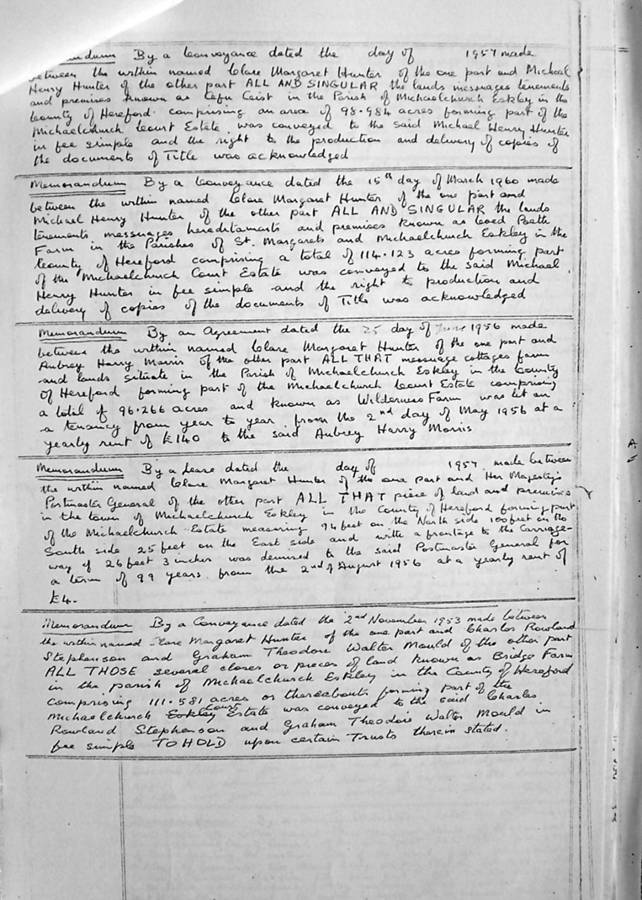 Memorandum By a Conveyance dated the day of 1957 made
between the within named Clare Margaret Hunter of the one part and Michael
Henry Hunter of the other part ALL AND SINGULAR the lands messuages tenements
and premises known as Cefn Ceist in the Parish of Michaelchurch Eskley in the
County of Hereford comprising an area of 98.984 acres forming part of the
Michaelchurch Court Estate was conveyed to the said Michael Henry Hunter
in fee simple and the right to the production and delivery of copies of
the documents of Title was acknowledged
Memorandum By a Conveyance dated the 15th day of March 1960 made
between the within named Clare Margaret Hunter of the one part and
Michael Henry Hunter of the other part ALL AND SINGULAR the lands
tenements messuages hereditaments and premises known as Coed Poeth
Farm in the Parishes of St. Margarets and Michaelchurch Eskley in the
County of Hereford comprising a total of 114.123 acres forming part
of the Michaelchurch Court Estate was conveyed to the said Michael
Henry Hunter in fee simple and the right to production and
delivery of copies of the documents of Title was acknowledged
Memorandum By an Agreement dated the 25 day of June 1956 made
between the within named Clare Margaret Hunter of the one part and
Aubrey Harry Morris of the other part ALL THAT messuage cottages farm
and lands situate in the Parish of Michaelchurch Eskley in the County
Of Hereford forming part of the Michaelchurch Court Estate comprising
a total of 96.266 acres and known as Wilderness Farm was let on
a tenancy from year to year from the 2nd day of May 1956 at a
yearly rent of £140 to the said Aubrey Harry Morris
Memorandum By a Lease dated the day of 1957 made between
the within named Clare Margaret Hunter of the one part and Her Majesty's
Postmaster General of the other part ALL THAT piece of land and premises
in the town of Michaelchurch Eskley in the County of Hereford forming part
of the Michaelchurch Estate measuring 94 feet on the North side 100 feet on the
South side 25 feet on the East side and with a frontage to the Carriage
way of 26 feet 3 inches was demised to the said Postmaster General for
a term of 99 years from the 2nd of August 1956 at a yearly rent of
£4.
Memorandum By a Conveyance dated the 2nd November 1953 made between
the within named Clare Margaret Hunter of the one part and Charles Rowland
Stephenson and Graham Theodore Walter Mould of the other part
ALL THOSE several closes or pieces of land known as Bridge Farm
in the parish of Michaelchurch Eskley in the County of Hereford
comprising 111.581 acres or thereabouts forming part of the
Michaelchurch Eskley Court Estate was conveyed to the said Charles
Rowland Stephenson and Graham Theodore Walter Mould in
fee simple TO HOLD upon certain Trusts therein stated.